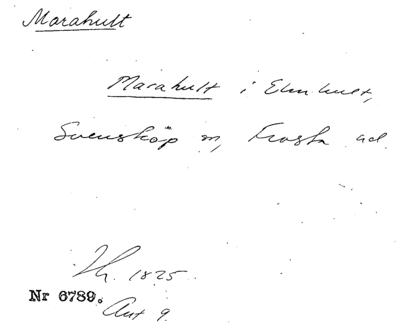 Marahult
Marahult i Elmhult,
Svensköp sn, Frosta hd.
1825
Nr 6789.
Aut 9